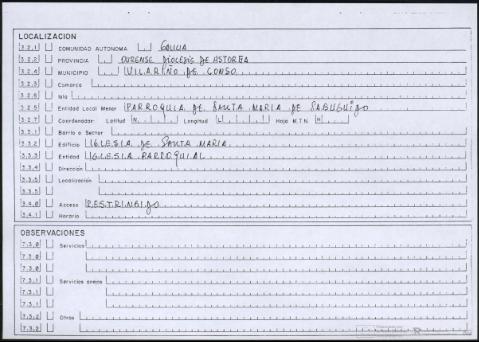 LOCALIZACION
3.2.1 COMUNIDAD AUTONOMA GALICIA
3.2.2 PROVINCIA OURENSE DIOCESIS DE ASTORGA
3.2.4 MUNICIPIO VILARIÑO DE CONSO
3.2.3 Comarca
3.2.6 Isla
3.2.5 Entidad Local Menor PARROQUIA DE SANTA MARIA DE SABUGUIDO
3.2.7 Coordenadas: Latitud N Longitud L Hoja M.T.N. H
3.3.1 Barrio o Sector
3.3.2 Edificio IGLESIA DE SANTA MARIA
3.3.3 Entidad IGLESIA PARROQUIAL
3.3.4 Dirección
3.3.5 Localización
3.3.5
3.4.0 Acceso RESTRINGIDO
3.4.1 Horario
OBSERVACIONES
7.3.0 Servicios
7.3.0
7.3.0
7.3.1 Servicios anejos
7.3.1
7.3.1
7.3.2 Otros
7.3.2